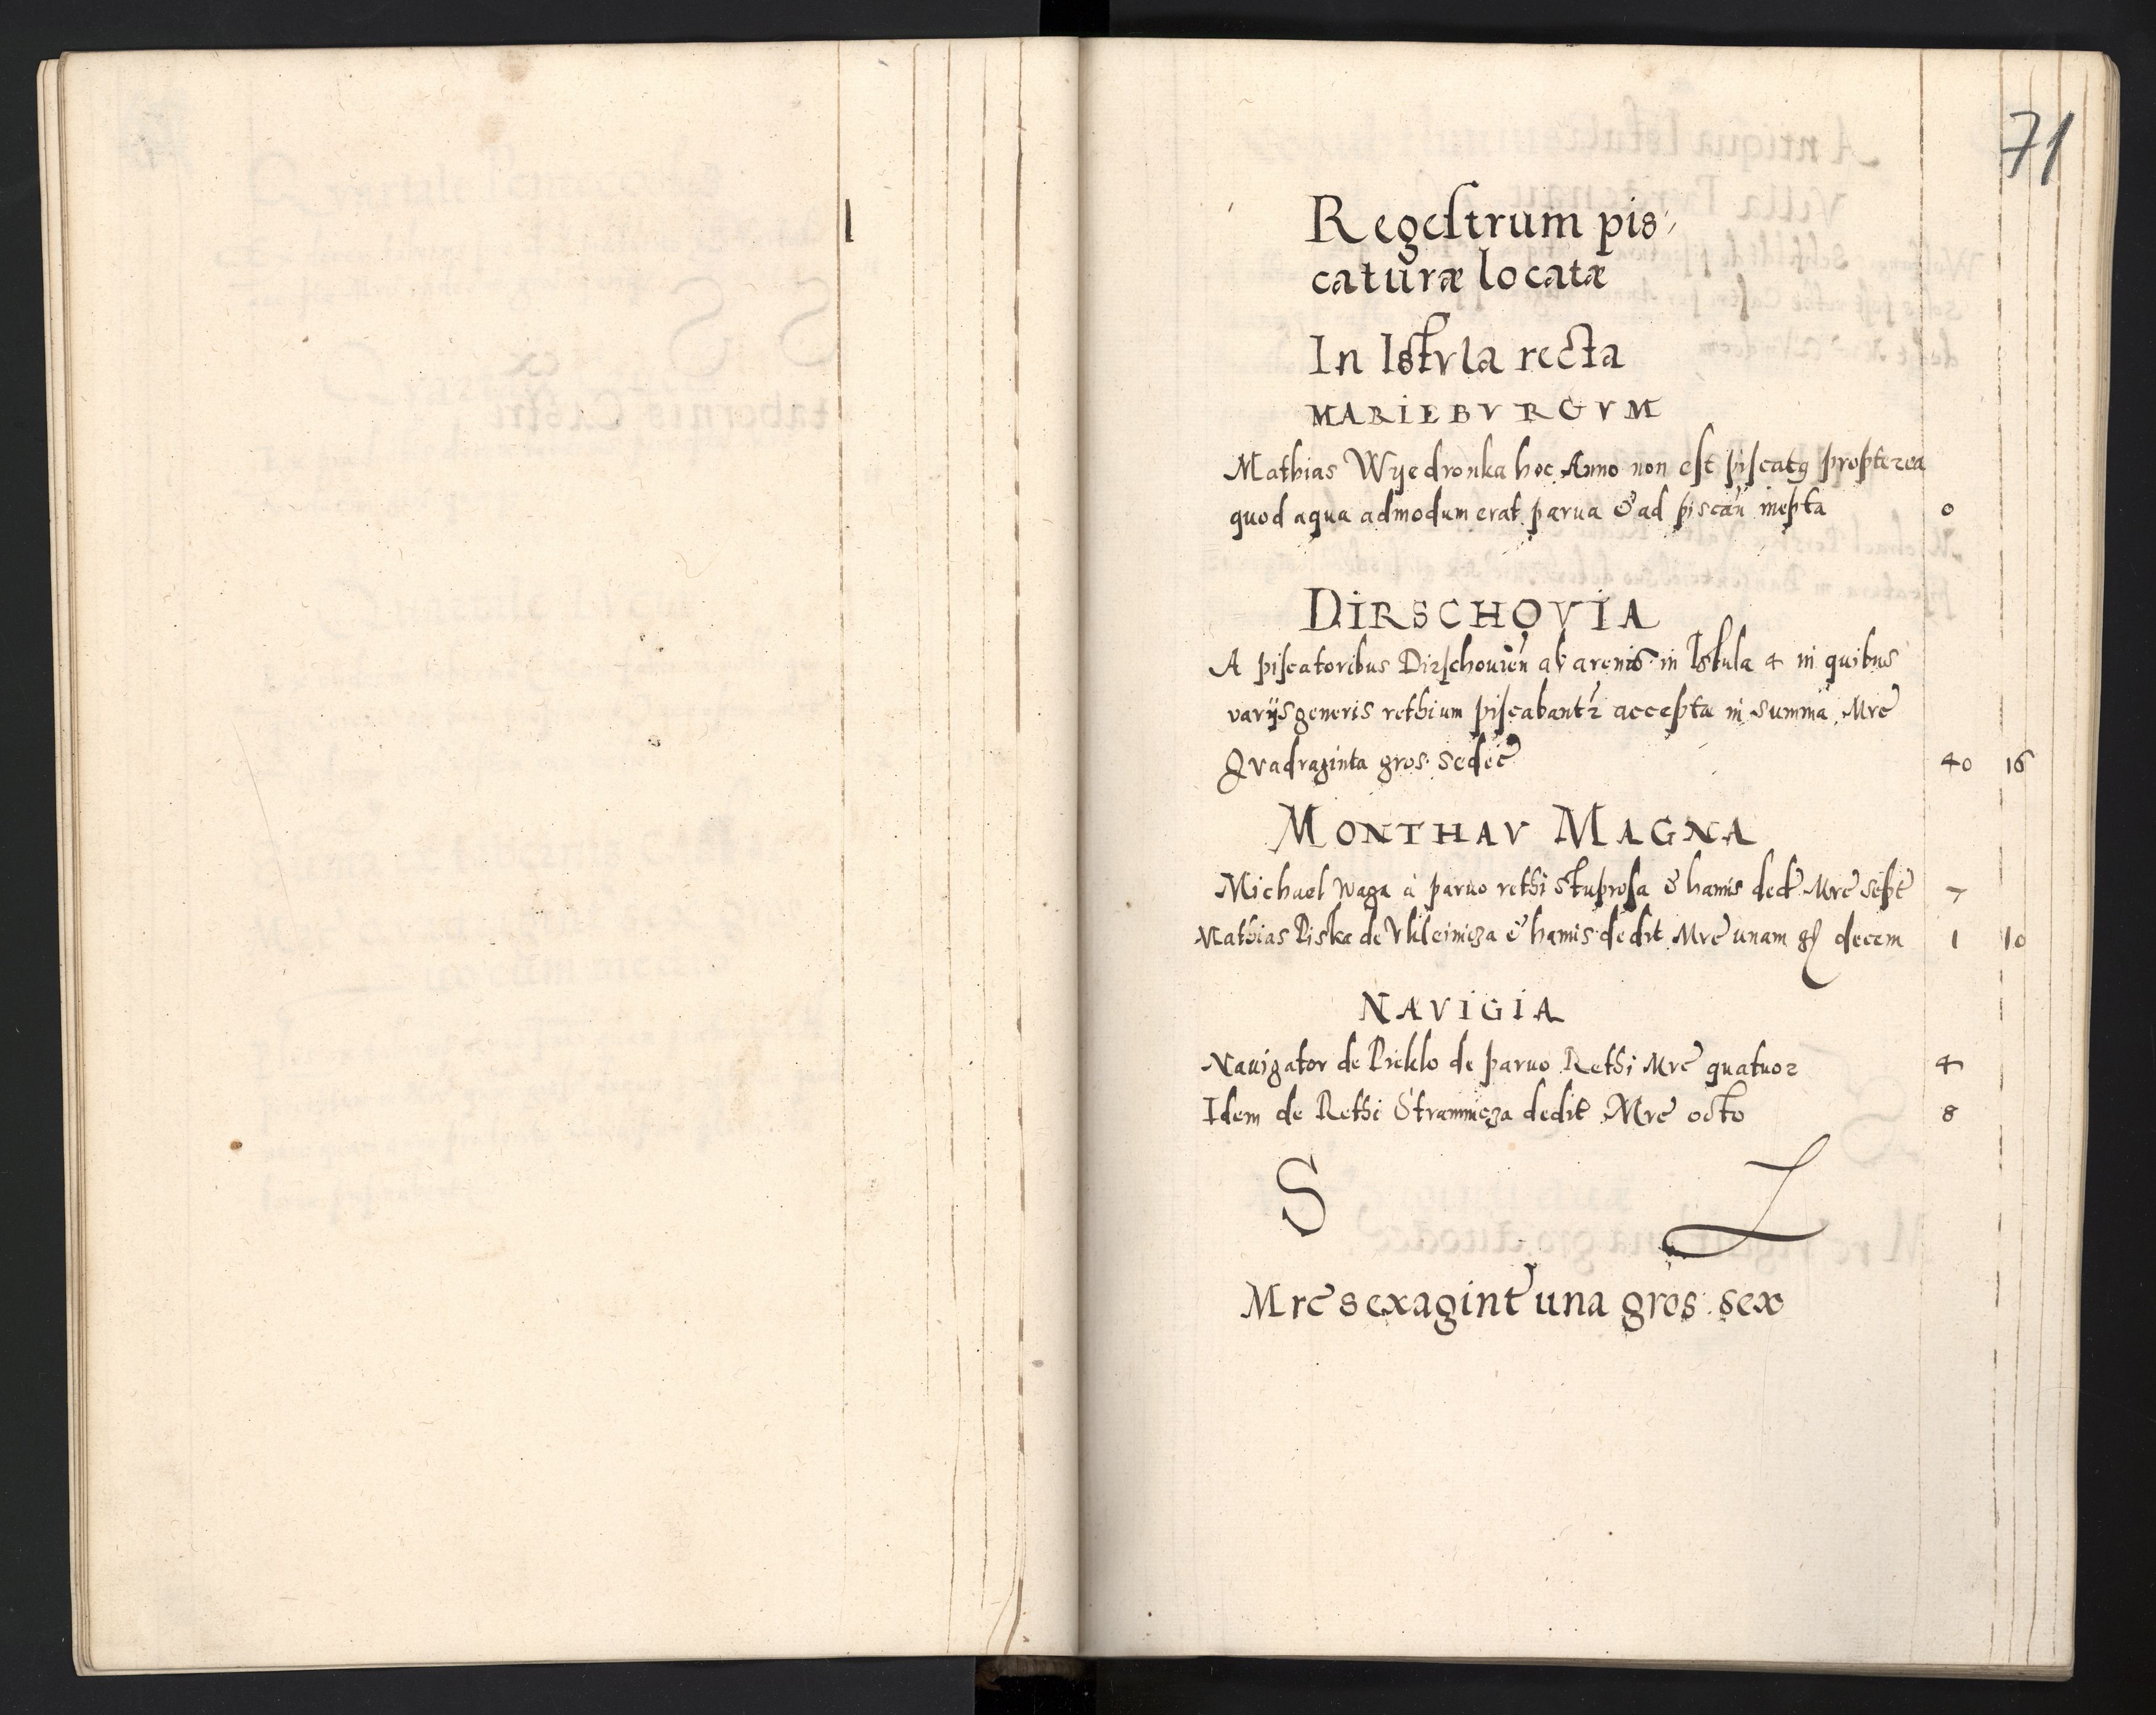 71
Regestrum pis⸗
caturæ locatæ
In Istvla recta
MARIEBVRGVM
Mathias Wyedronka hoc Anno non est piscatꝰ propterea
quod aqua admodum erat parua & ad piscan̄ inepta 0
DIRSCHOVIA
A piscatoribus Dirschouien̄ ab arenis in Istula 4 in quibus
varijs generis rethium piscabantr accepta in summa Mrc̃
Qvadraginta gros sedec̃ 40 16
MONTHAV MAGNA
Michael Waga a paruo rethi stuprosa & hamis dedt̃ Mrc̃ sept̃ 7
Mathias Piska de Vkleinicza & hamis dedit Mrc̃ unam gр decem 1 10
NAVIGIA
Nauigator de Pieklo de paruo Rethi Mrc̃ quatuor 4
Idem de Rethi Strammicza dedit Mrc̃ octo 8
S
Mrc̃ sexagint̃ una gros sex